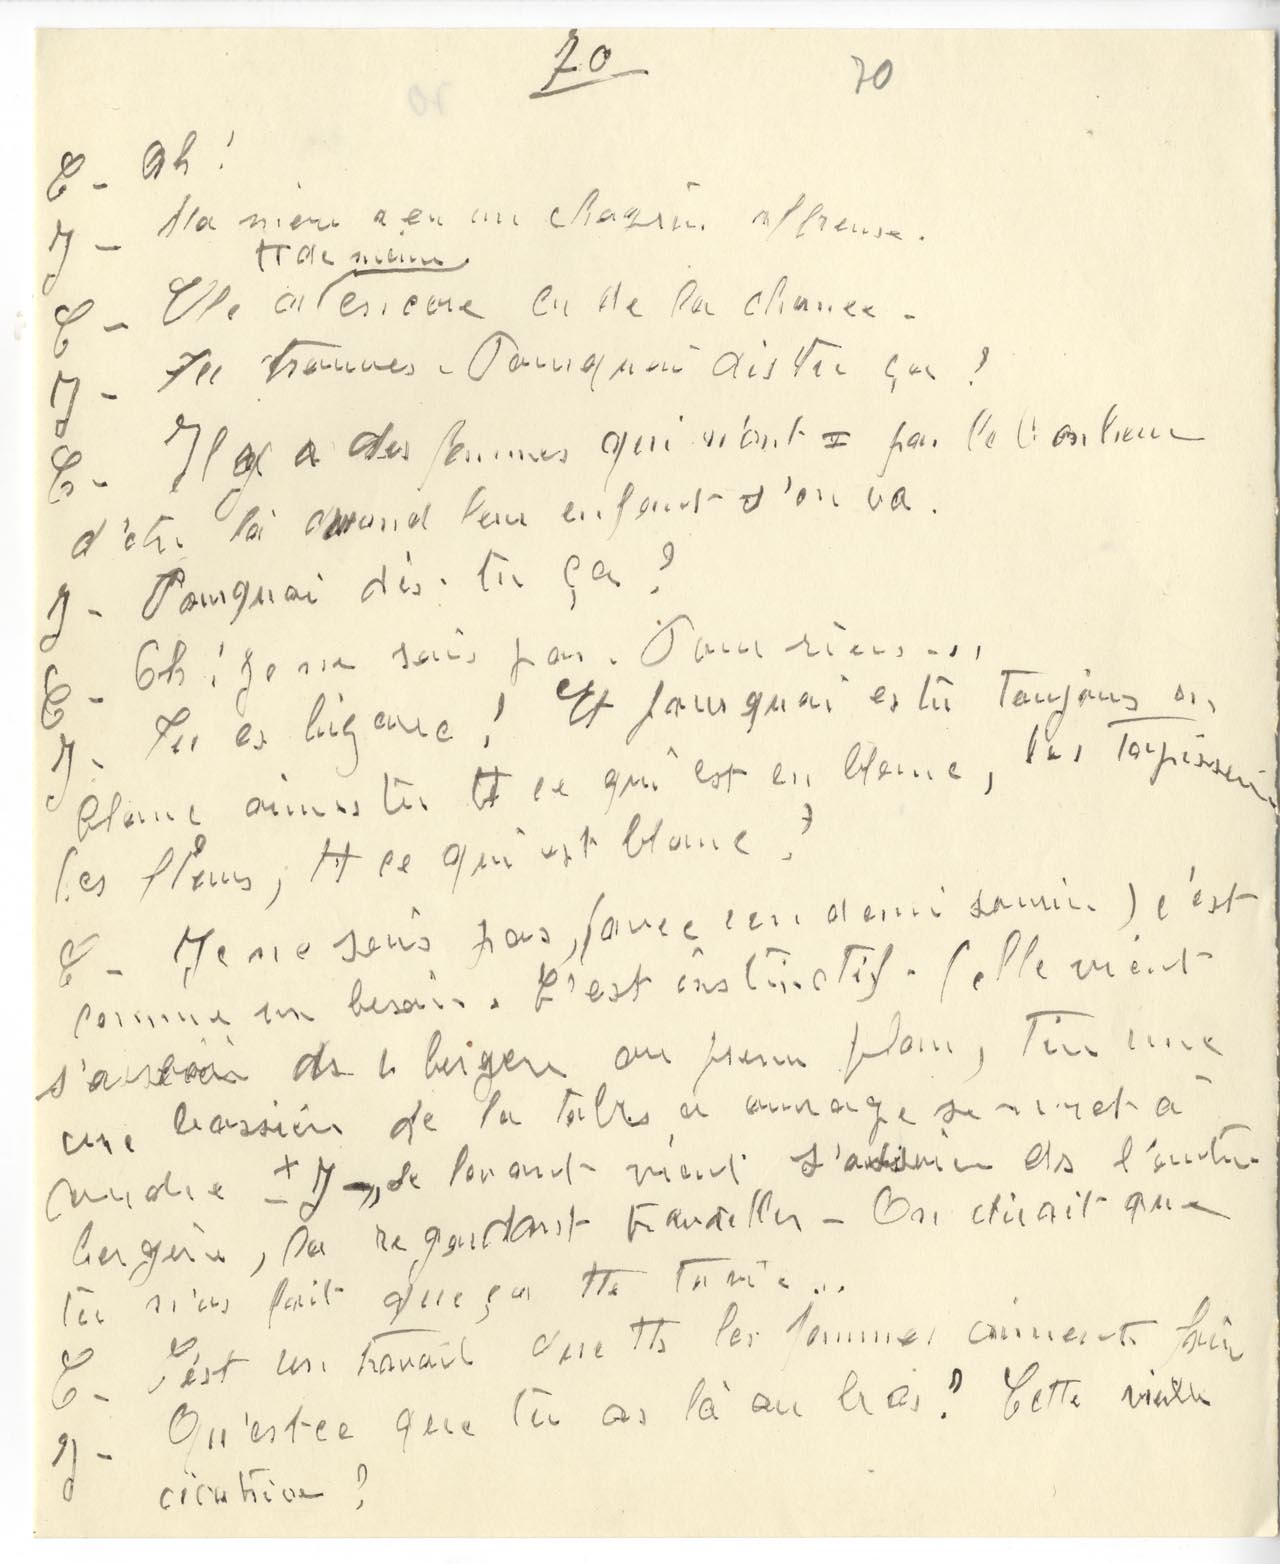 70 70
C - Ah !
J - Ma mère a eu un chagrin affreux.
tt de même
C - Elle a encore eu de la chance -
J - Tu trouves - Pourquoi dis tu ça ?
C - Il y a des femmes qui n'ont pas le bonheur
d'être là quand leur enfant s'en va.
J - Pourquoi dis-tu ça ?
C - Oh ! je ne sais pas. Pour rien...
J - Tu es bizarre ! Et pourquoi es tu toujours en
blanc aimes tu tt ce qui est en blanc, les tapisseries
les fleurs, tt ce qui est blanc ?
C - Je ne sais pas, (avec un demi sourire) c'est
comme un besoin. C'est instinctif - (elle vient
s'asseoir ds la bergère au premier plan, tire une
une brassière de la table à ouvrage se met à
coudre ± J - se levant vient s'asseoir ds l'autre
bergère, la regardant travailler - On dirait que
tu n'as fait que ça tte ta vie...
C - C'est un travail que ttes les femmes aiment faire
J - Qu'est-ce que tu as là au bras ? Cette vieille
cicatrice ?